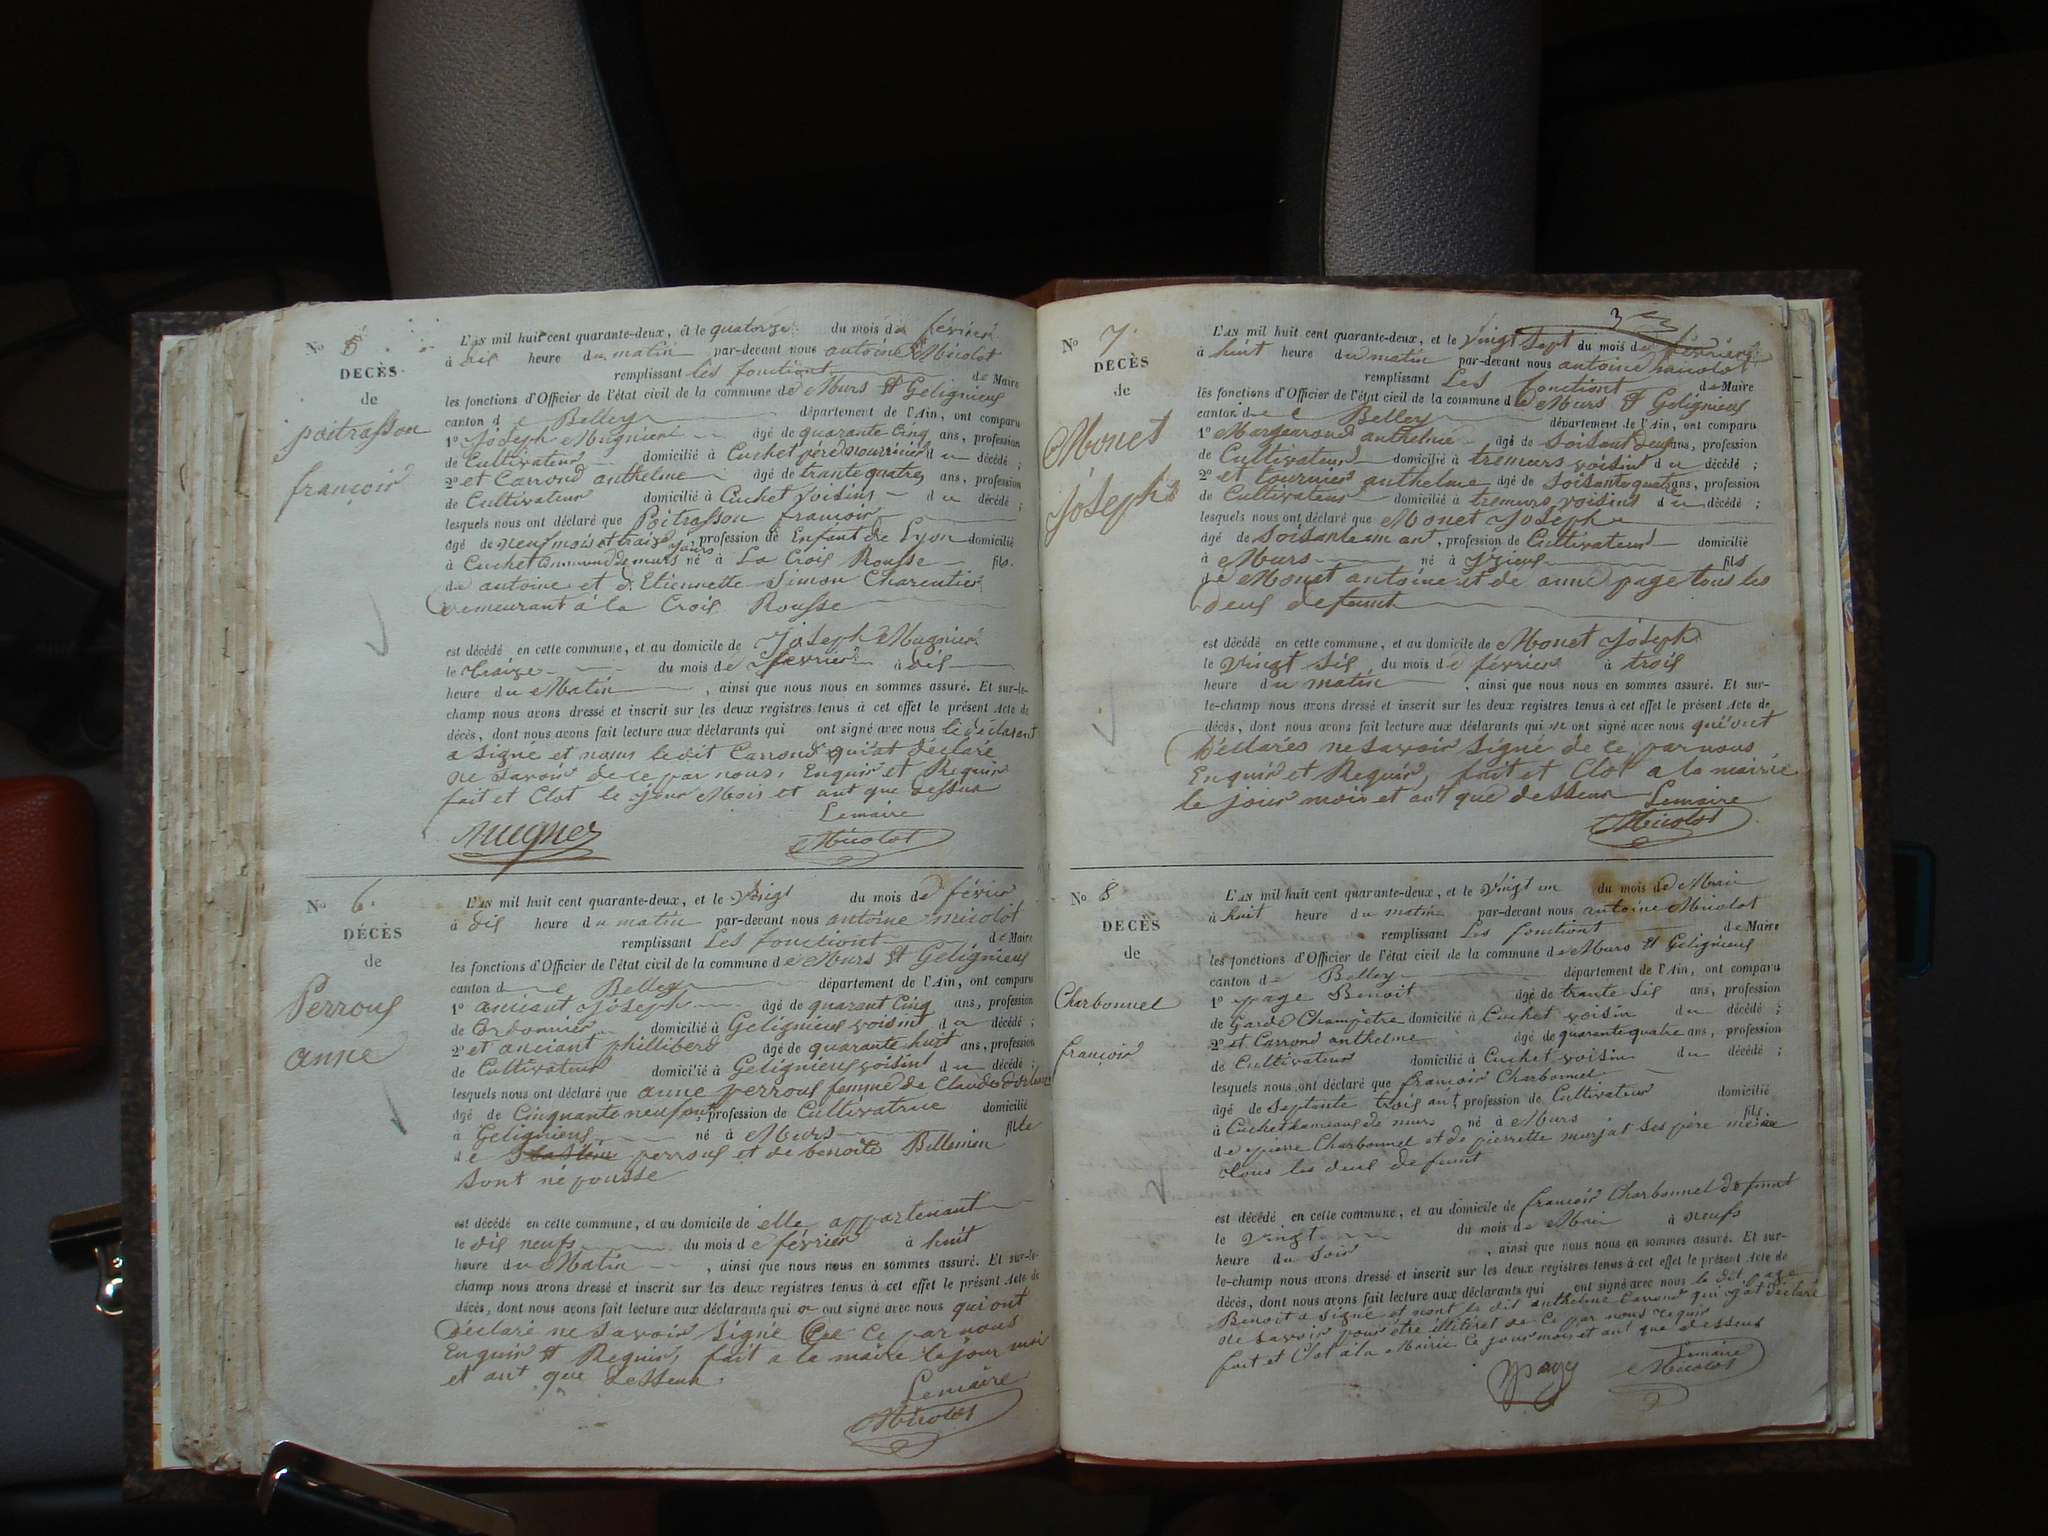 No 5
DECÈS
de
poitrasson
françois
L'AN mil huit cent quarante-deux, et le quatorze du mois de février
à dis heure du matin par-devant nous antoine Micolot
remplissant les fonctiont de Maire
les fonctions d'Officier de l'état civil de la commune de Murs et Gelignieus
canton de Belley département de l'Ain, ont comparu
1º Joseph Mugnier âgé de quarante Cinq ans, profession
de Cultivateur domicilié à Cuchet père nourricier du décédé ;
2º et Carrond anthelme âgé de trante quatre ans, profession
de Cultivateur domicilié à Cuchet voisins du décédé ;
lesquels nous ont déclaré que Poitrasson francois
âgé de neuf mois et traize jours, profession de Enfant de Lyon domicilié
à Cuchet Commune de murs né à La Crois Rousse fils
de antoine et d'Etiennette Simon Charentier
Demeurant à la Crois Rousse
est décédé en cette commune, et au domicile de Joseph Mugnier
le traize du mois de février à dis
heure du Matin , ainsi que nous nous en sommes assuré. Et sur-le-
champ nous avons dressé et inscrit sur les deux registres tenus à cet effet le présent Acte de
décès, dont nous avons fait lecture aux déclarants qui ont signé avec nous le déclarent
a signé et nom ledit Carrond qui at déclaré
ne savoir de ce par nous, Enquir et Requir
fait et Clot le jour Mois et ant que dessus
Lemaire
Mugner Micolot
No 6
DÉCÈS
de
Perrous
anne
L'AN mil huit cent quarante-deux, et le vingt du mois de févrir
à dis heure du matin par-devant nous antoine micolot
remplissant Les fonctiont de Maire
les fonctions d'Officier de l'état civil de la commune de Murs et Gelignieus
canton de Belley département de l'Ain, ont comparu
1º anciant Joseph âgé de quarant Cinq ans, profession
de Cordonnier domicilié à Gelignieus voisint du décédé ;
2º et anciant phillibert âgé de quarante huit ans, profession
de Cultivateur domicilié à Gelignieus voisint du décédé ;
lesquels nous ont déclaré que anne perrous femme de Claude
âgé de Cinquante neuf ant, profession de Cultivatrice domicilié
à Gelignieus né à Murs fille
de perrous et de benoite Billemin
sont népousse
est décédé en cette commune, et au domicile de elle appartenant
le dis neufs du mois de février à huit
heure du Matin , ainsi que nous nous en sommes assuré. Et sur-le-
champ nous avons dressé et inscrit sur les deux registres tenus à cet effet le présent Acte de
décès, dont nous avons fait lecture aux déclarants qui ont signé avec nous qui ont
déclaré ne savoir signé de ce par nous
Enquir et Requir, fait a la maire le jour moi
et ant que desseur.
Lemaire
Micolot
3
No 7
DÉCÈS
de
Monet
Joseph
L'AN mil huit cent quarante-deux, et le vingt Sept du mois de février
à huit heure du matin par-devant nous antoine micolot
remplissant Les fonctiont de Maire
les fonctions d'Officier de l'état civil de la commune de Murs et Gelignieus
canton de Belley département de l'Ain, ont comparu
1º anthelme âgé de Soisant deus ans, profession
de Cultivateur domicilié à tremurs voisint du décédé ;
2º et tournier anthelme âgé de Soisante quatre ans, profession
de Cultivateur domicilié à tremurs voisins du décédé ;
lesquels nous ont déclaré que Monet Joseph
âgé de Soisante un ant, profession de Cultivateur domicilié
à Murs né à Izieus fils
de Monet antoine et de anne page tous les
deus defunt
est décédé en cette commune, et au domicile de Monet Joseph
le vingt Sis du mois de février à trois
heure du matin , ainsi que nous nous en sommes assuré. Et sur-
le-champ nous avons dressé et inscrit sur les deux registres tenus à cet effet le présent Acte de
décès, dont nous avons fait lecture aux déclarants qui ne ont signé avec nous qu'ont
Déclarés ne Savoir Signé de ce par nous
Enquir et Requir, fait et Clot a la mairie
le jour mois et ant que desseur Lemaire
Micolot
No 8
DÉCÈS
de
Charbonnel
françois
L'AN mil huit cent quarante-deux, et le vingt un du mois de Mai
à huit heure du matin par-devant nous antoine Micolot
remplissant Les fonctiont de Maire
les fonctions d'Officier de l'état civil de la commune de Murs et Gelignieus
canton de Belley département de l'Ain, ont comparu
1º page Benoit âgé de trante Sis ans, profession
de Garde Champêtre domicilié à Cuchet voisin du décédé ;
2º et Carrond anthelme âgé de quarante quatre ans, profession
de Cultivateur domicilié à Cuchet voisin du décédé ;
lesquels nous ont déclaré que francois Charbonnel
âgé de Septante trois ant, profession de Cultivateur domicilié
à Cuchet hameaus de murs né à Murs fils
de pierre Charbonnel et de pierrette murjat ses père mére
tous les deus defunt
est décédé en cette commune, et au domicile de francois Charbonnel defunt
le vingt du mois de Mai à neufs
heure du Soir , ainsi que nous nous en sommes assuré. Et sur-
le-champ nous avons dressé et inscrit sur les deux registres tenus à cet effet le présent Acte de
décès, dont nous avons fait lecture aux déclarants qui ont signé avec nous le dit page
Benoit a Signé et nont le dit anthelme Carrond qui at déclaré
ne savoir pour être illitéret de ce par nous requir
fait et Clot à la Mairie le jour mois et ant que dessus
Lemaire
page Micolot